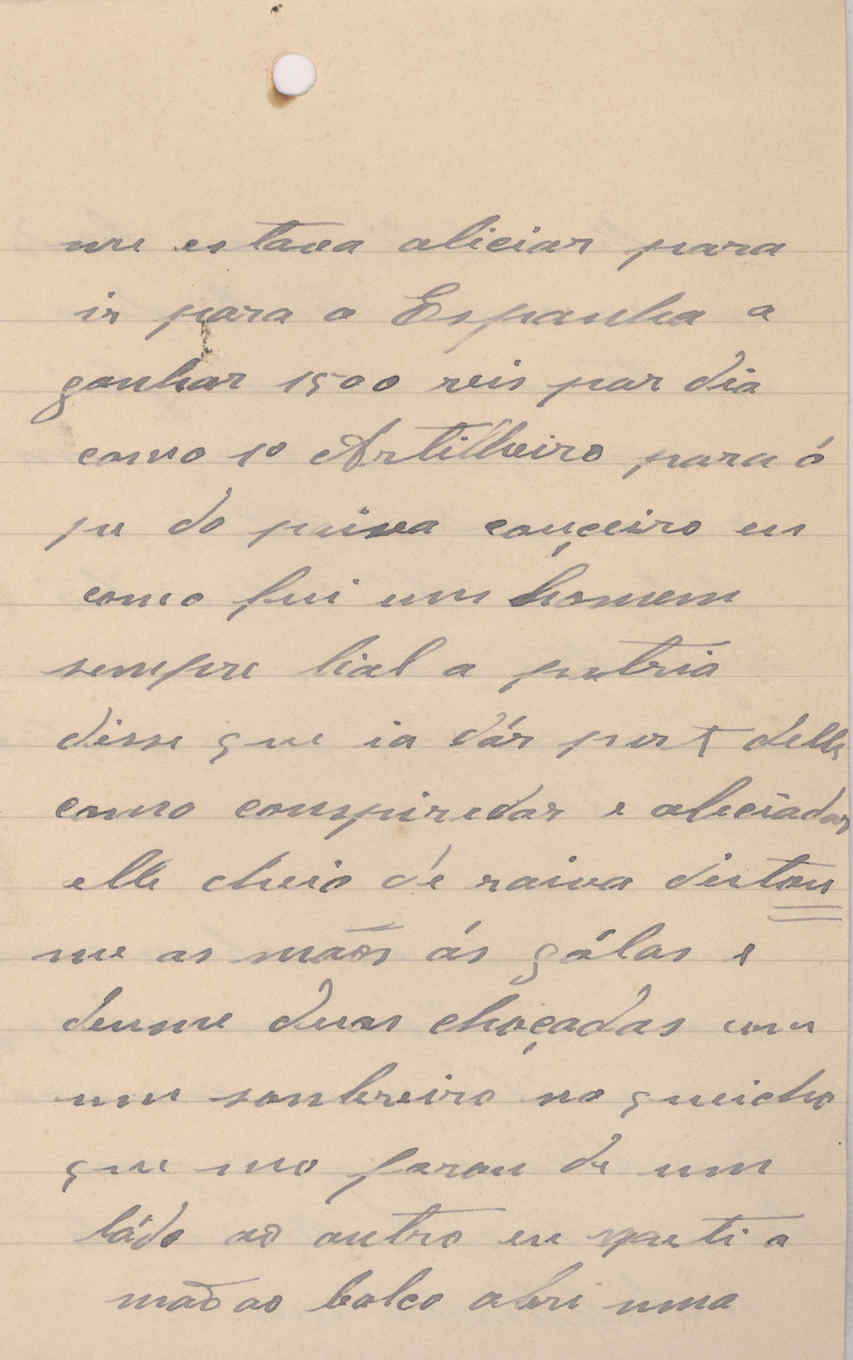 me estava aliciar para
ir para a Espanha a
ganhar 1500 reis por dia
como 1º Artilheiro para ó
pe do paiva couçeiro eu
como fui um homem
sempre lial a patria
disse que ia dár part delle
como conspiredor e aleciador
elle cheio dé raiva deitou
me as mãos ás gólas e
deume duas choçadas com
um sonbreiro no queicho
que mo farou de um
ládo ao outro eu meti a
mão ao bolco abri uma